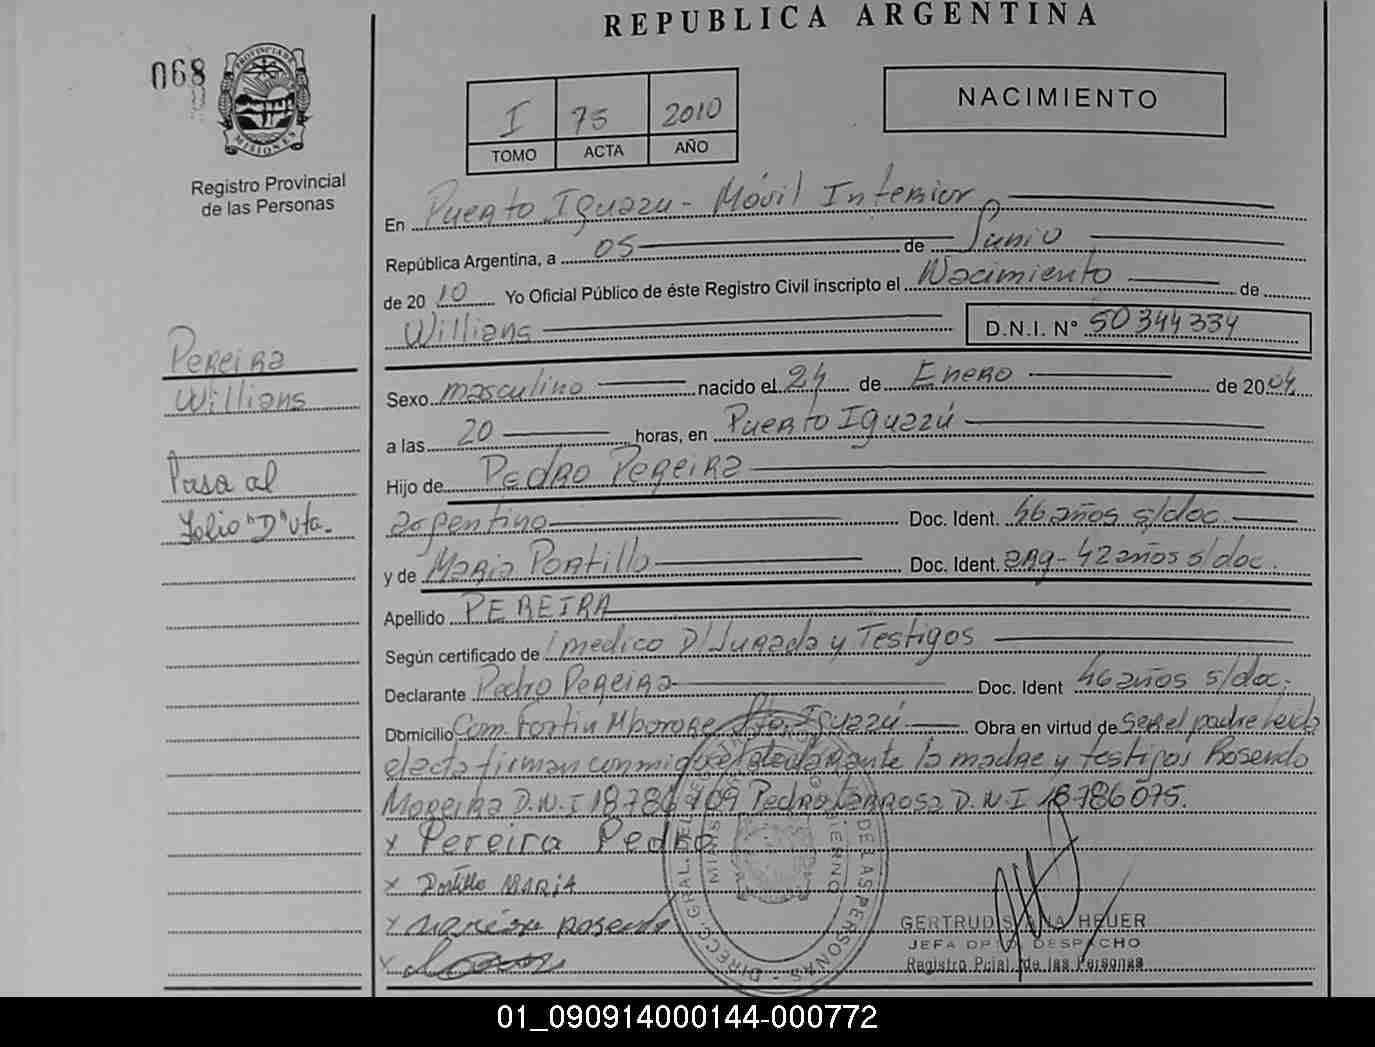 REPUBLICA ARGENTINA
068
PROVINCIA DE MISIONES
Registro Provincial
de las Personas
I 75 2010
TOMO ACTA AÑO
NACIMIENTO
En Puerto Iguazu - Móvil Interior
República Argentina, a 05 de Junio
de 2010 Yo Oficial Público de éste Registro Civil inscripto el Nacimiento de
Willians D.N.I. Nº 50344334
Pereira
Willians
Pasa al
Folio "D" vta.
Sexo masculino nacido el 24 de Enero de 2004
a las 20 horas, en Puerto Iguazú
Hijo de Pedro Pereira
argentino Doc. Ident. 46 años s/doc.
y de Maria Portillo Doc. Ident. arg- 42 años s/doc.
Apellido PEREIRA
Según certificado de medico D/Jurada y Testigos
Declarante Pedro Pereira Doc. Ident 46 años s/doc.
Domicilio Com. Fortin Mborore Pto. Iguazú Obra en virtud de ser el padre Leida
el acta firman conmigo el declarante la madre y testigos Rosendo
Moreira D.N.I 18786109 Pedro D.N.I 18786075.
x Pereira Pedro
x Portillo MARIA
x Rosendo
x
GERTRUDIS ANA HEUER
JEFA DPTO. DESPACHO
Registro Pcial. de las Personas
DIRECC. GRAL. DEL REGISTRO DE LAS PERSONAS
01_090914000144-000772